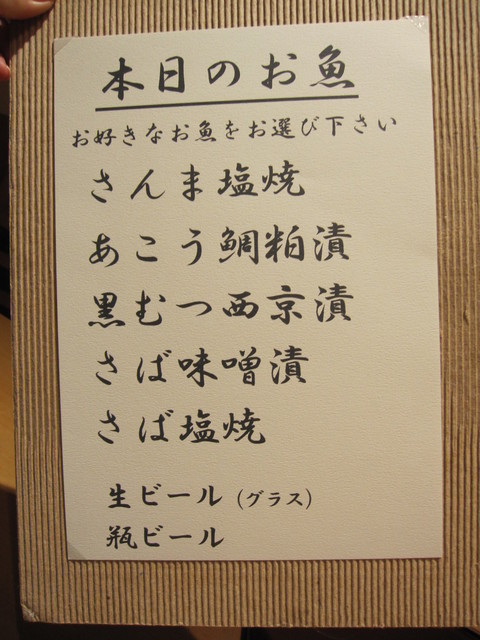 本日のお魚
お好きなお魚をお選び下さい
さんま塩焼
あこう鯛粕漬
黒むつ西京漬
さば味噌漬
さば塩焼
生ビール（グラス）
瓶ビール